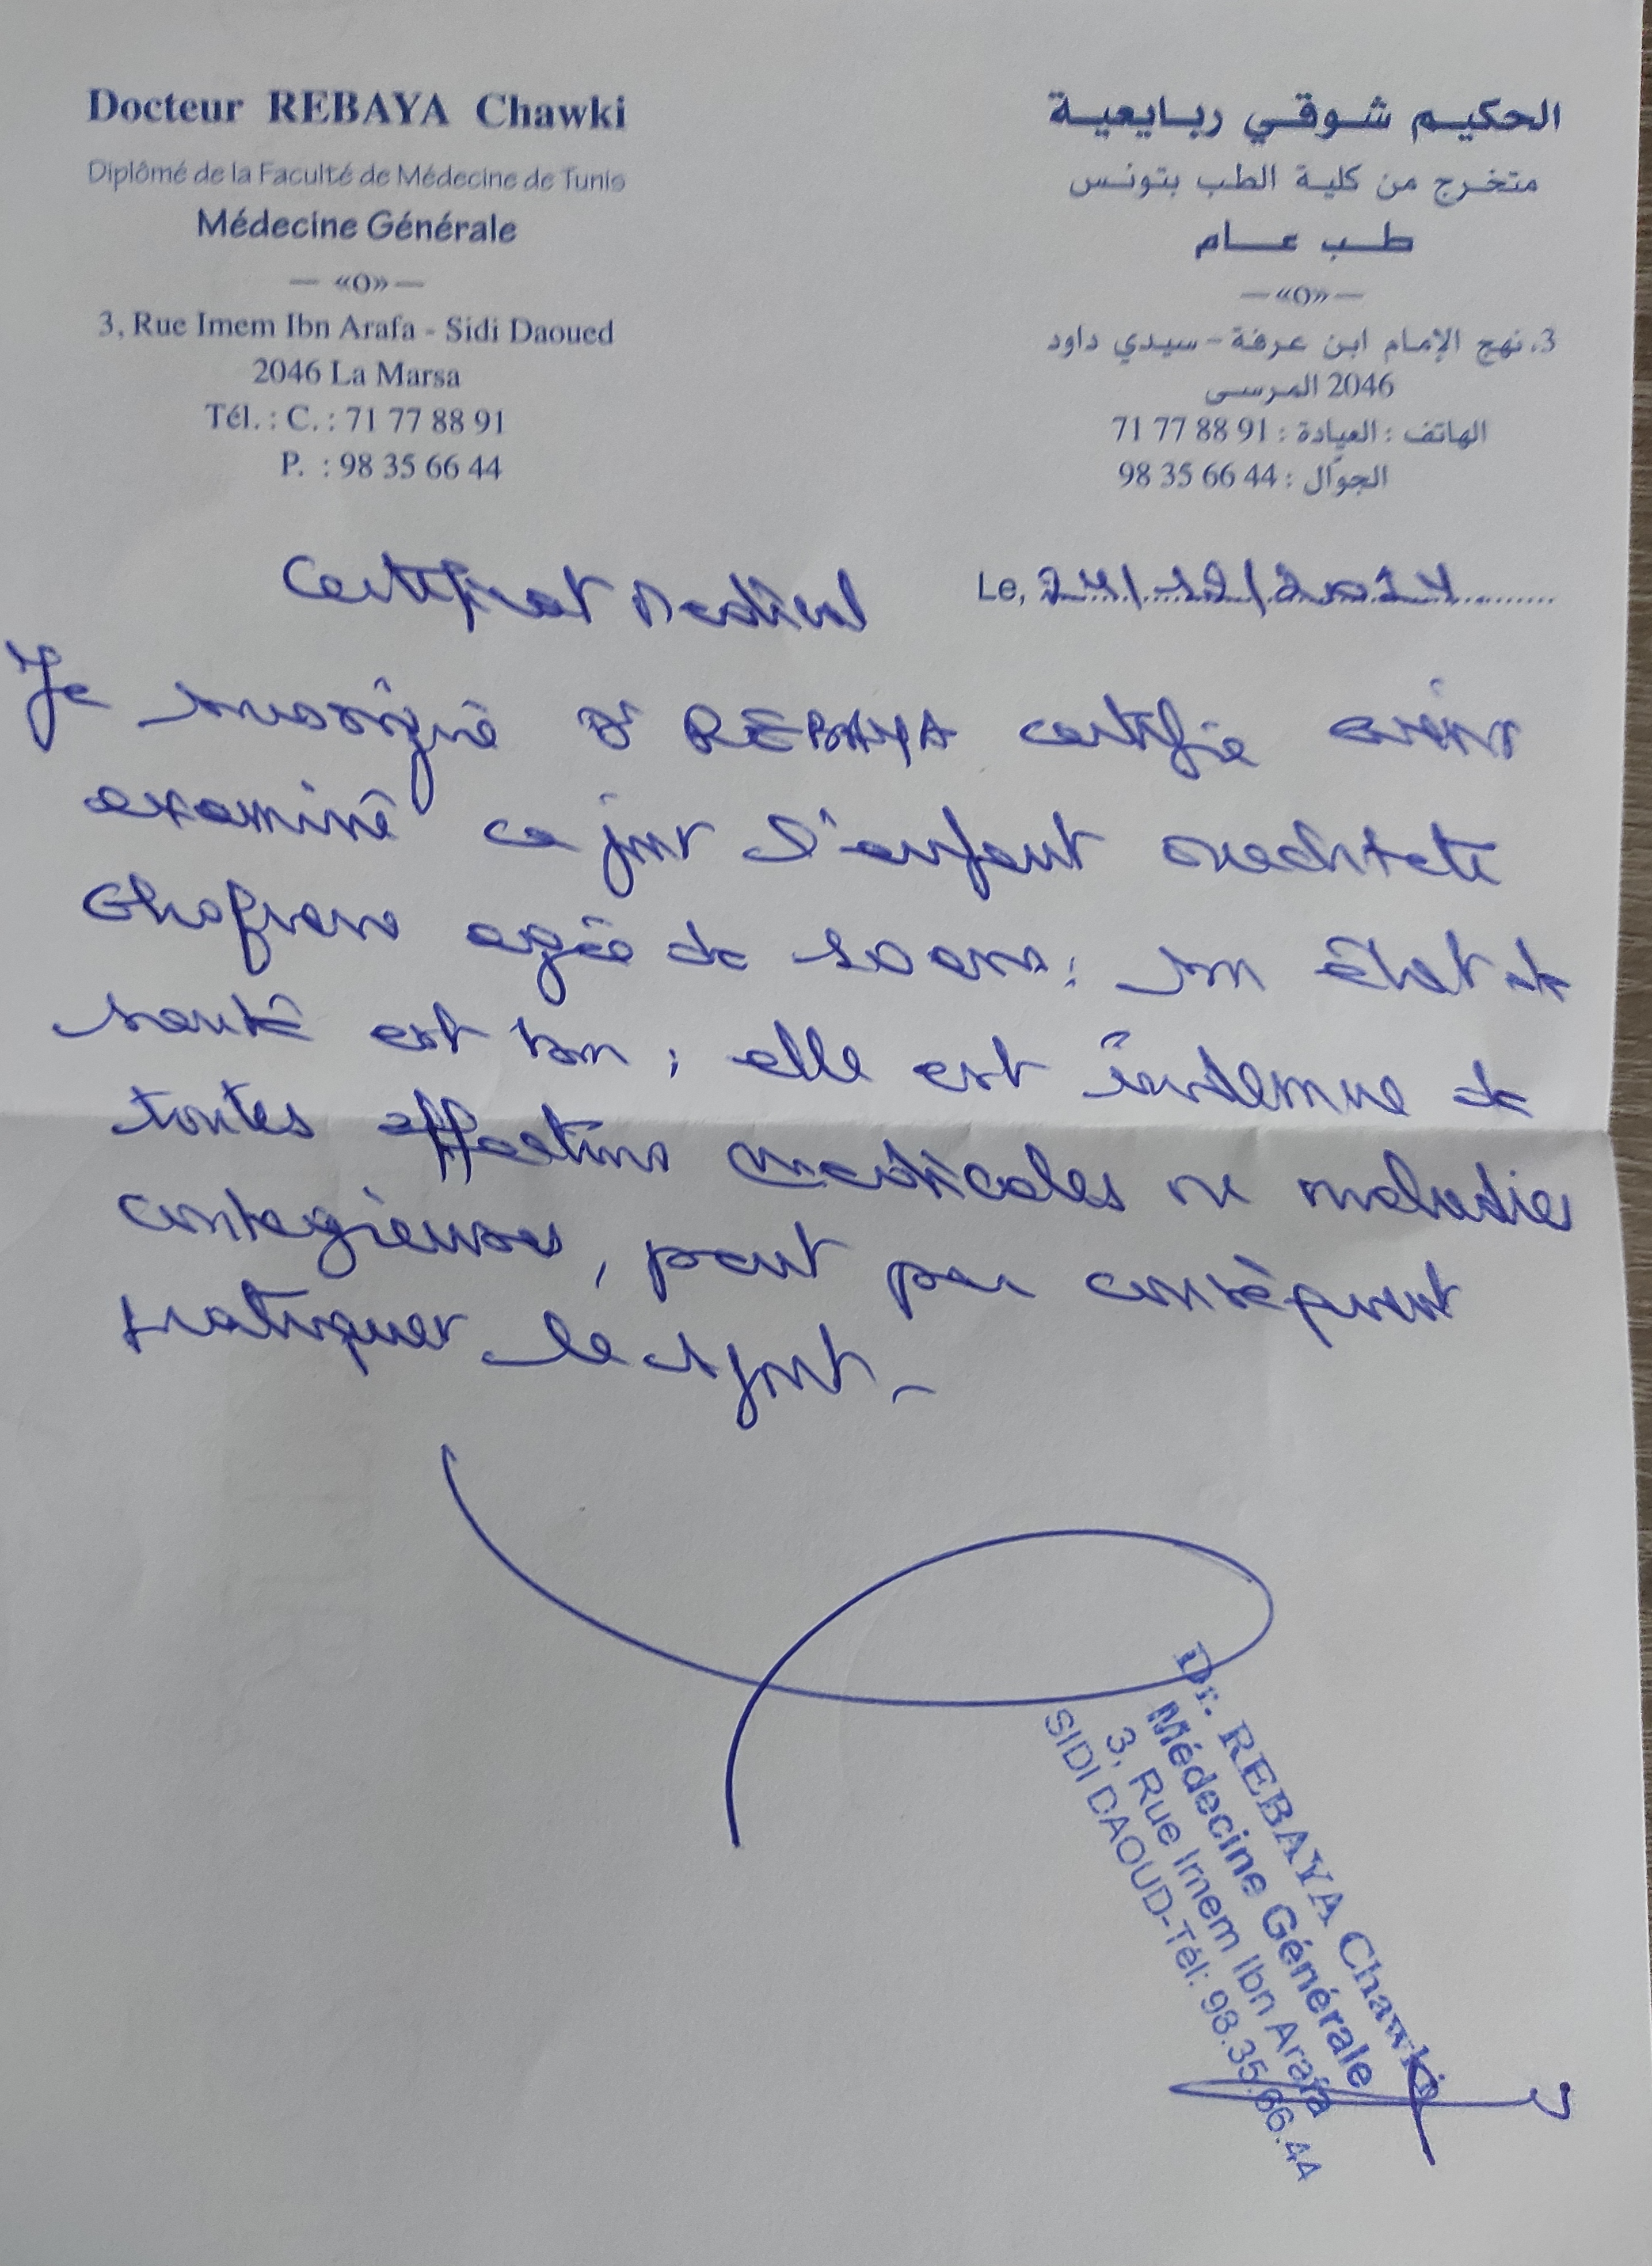 Docteur REBAYA Chawki
Diplômé de la Faculté de Médecine de Tunis
Médecine Générale
— «O» —
3, Rue Imem Ibn Arafa - Sidi Daoued
2046 La Marsa
Tél. : C. : 71 77 88 91
P. : 98 35 66 44
الحكيم شوقي ربايعية
متخرج من كلية الطب بتونس
طب عام
— «O» —
3، نهج الإمام ابن عرفة - سيدي داود
2046 المرسى
الهاتف : العيادة : 71 77 88 91
الجوّال : 98 35 66 44
Certificat Medical
Le,
Je soussigné Dr REBAYA certifie avoir
examiné ce jour l'enfant
Ghofrane agée de 10 ans ; son état de
santé est bon ; elle est indemne de
toutes affections médicales ou maladies
contagieuses, peut par conséquent
pratiquer le sport.
Dr. REBAYA Chawki
Médecine Générale
3, Rue Imem Ibn Arafa
SIDI DAOUD-Tél: 98.35.66.44